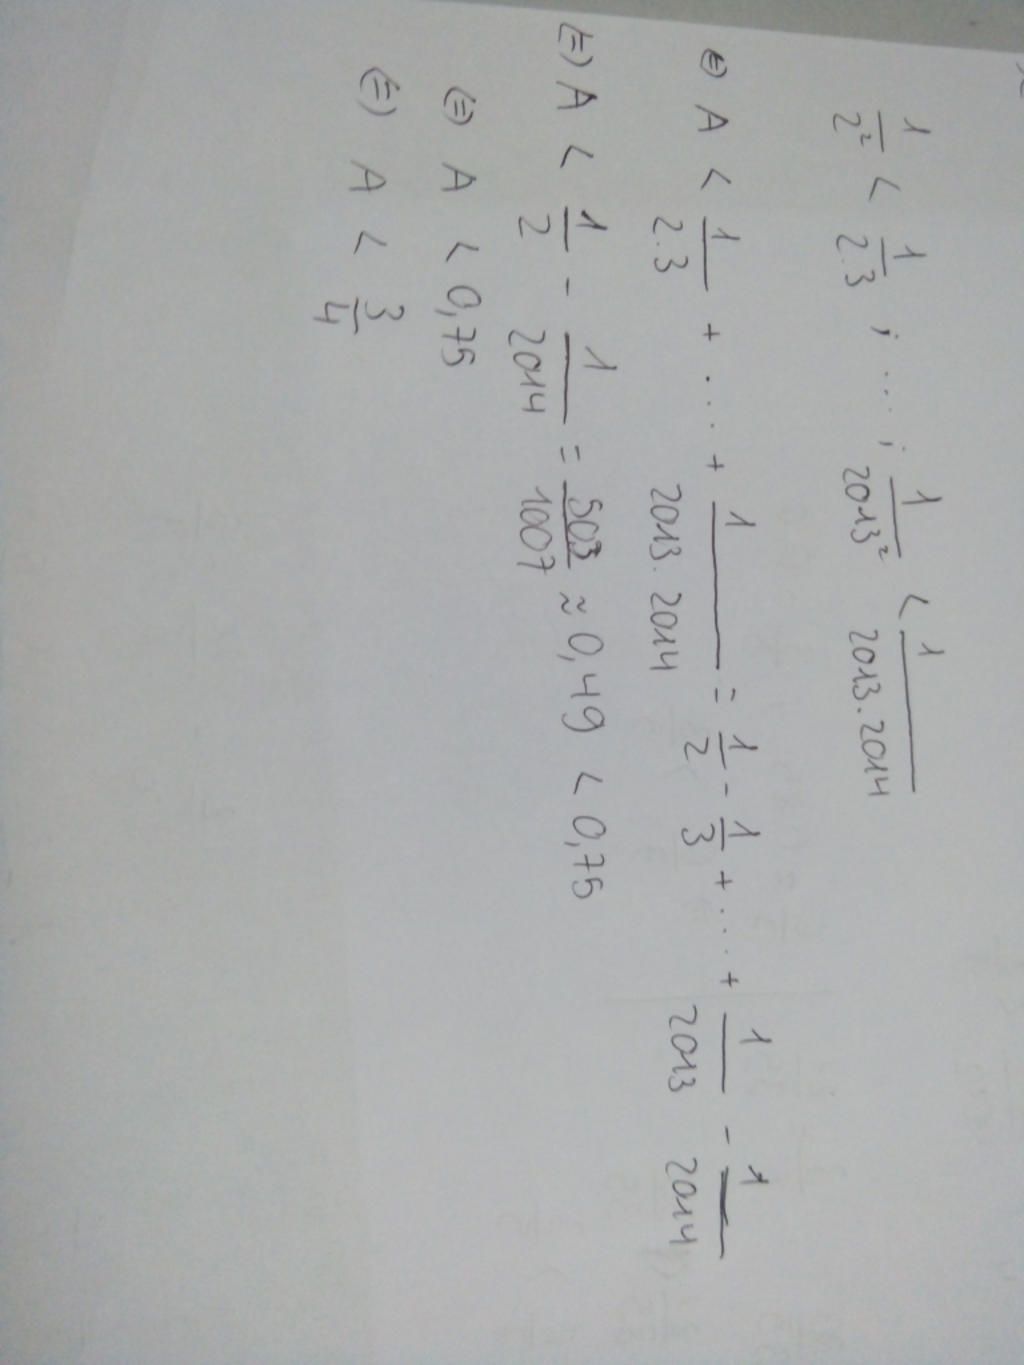 1/2² < 1/2.3 ; ... ; 1/2013² < 1/2013.2014
(=) A < 1/2.3 + ... + 1/2013.2014 = 1/2 - 1/3 + ... + 1/2013 - 1/2014
(=) A < 1/2 - 1/2014 = 503/1007 ≈ 0,49 < 0,75
(=) A < 0,75
(=) A < 3/4